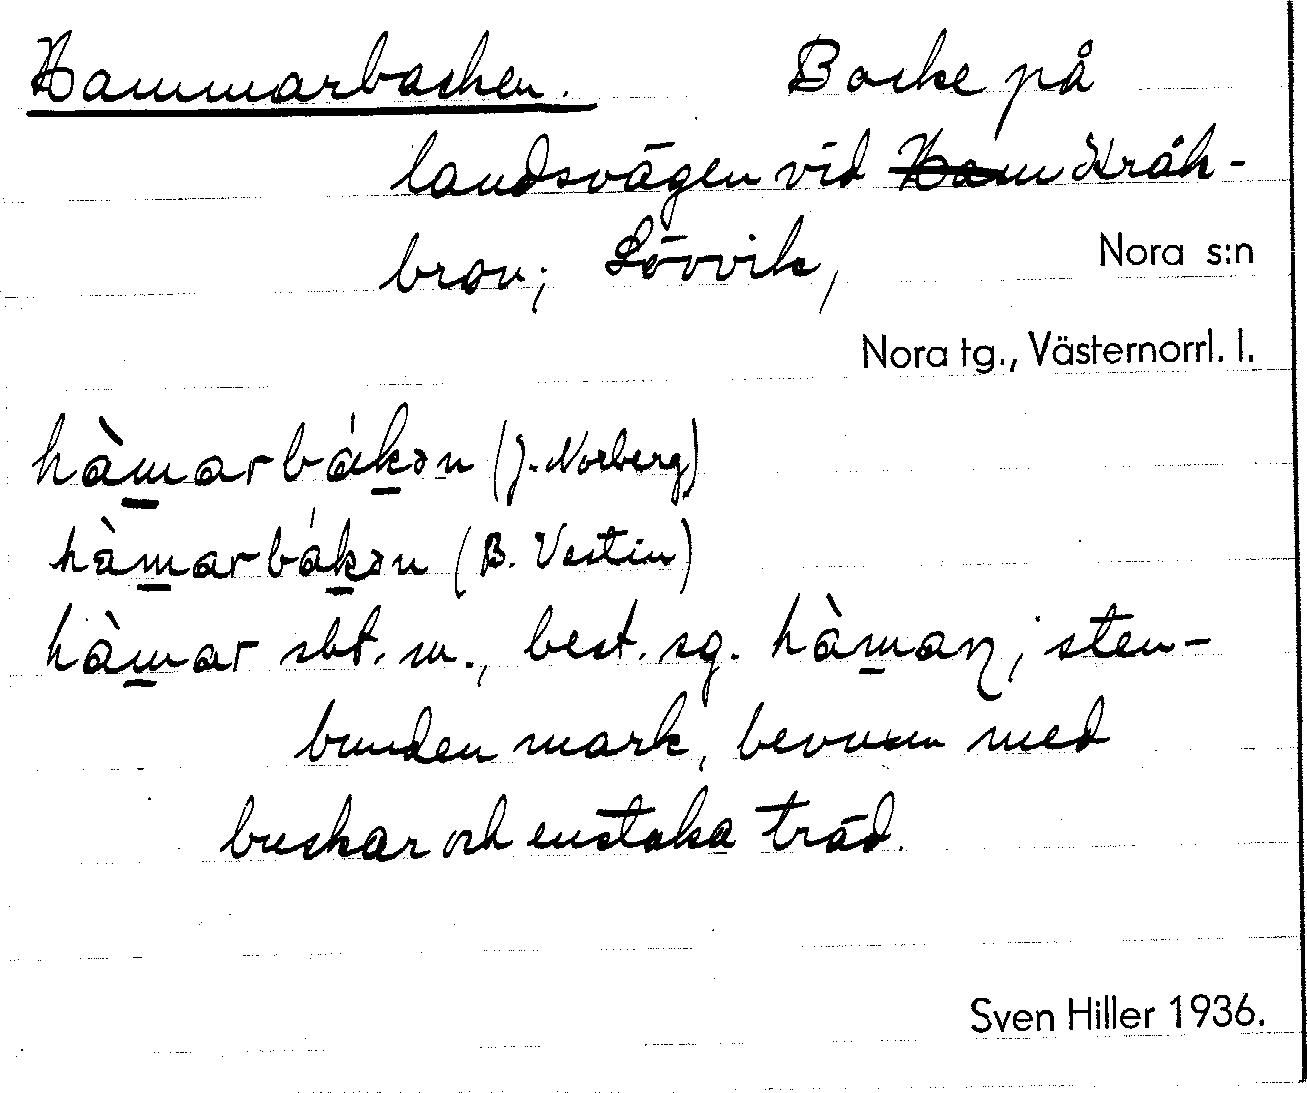 Hammarbacken. Backe på
landsvägen vid Ham Kråk-
bron; Lövvik, Nora s:n
Nora tg., Västernorrl. l.
hàmarbákən (J. Norberg)
hàmarbákən (B. Vestin)
hàmar sbt. m., best. sg. hàmaɳ; sten-
bunden mark, bevuxen med
buskar och enstaka träd.
Sven Hiller 1936.